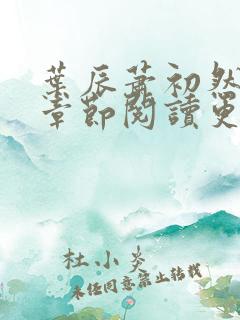 葉辰蕭初然
章節閱讀更
杜小炎
未经同意禁止转载